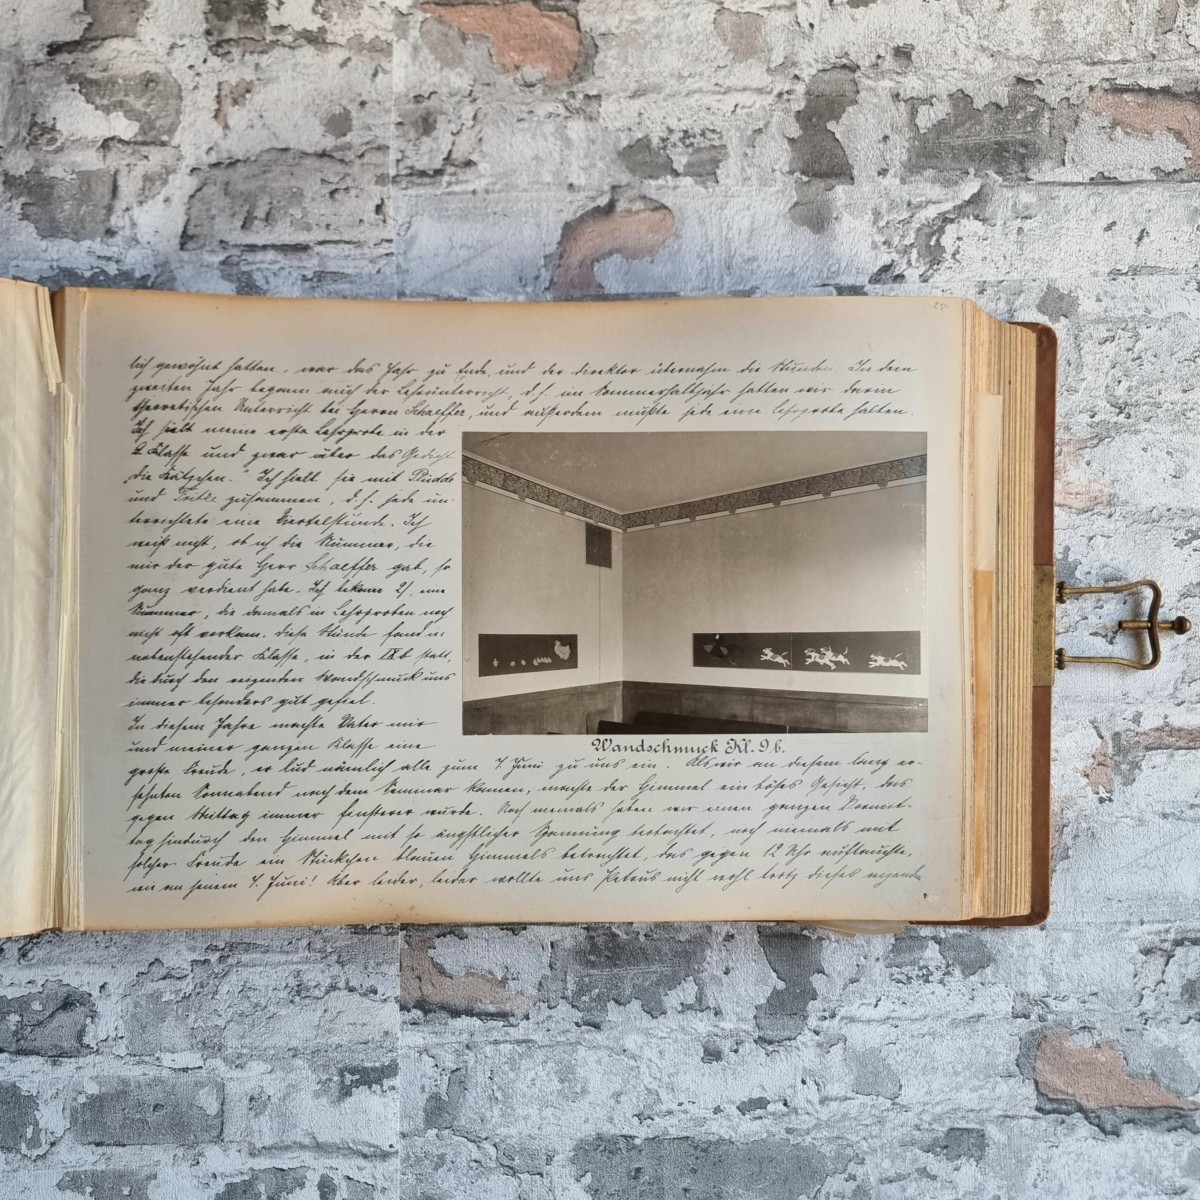 lich gewöhnt hatten, war das Jahr zu Ende, und der Direktor übernahm die Stunden. In dem
zweiten Jahr begann auch der Lehrunterricht, d. h. im Sommerhalbjahr hatten wir darin
theoretischen Unterricht bei Herrn Schaeffer, und außerdem mußte jede eine Lehrprobe halten.
Ich hielt meine erste Lehrprobe in der
Klasse und zwar über das Gedicht
„Die Kätzchen." Ich hielt sie mit
und zusammen, d. h. jede un-
terrichtete eine Viertelstunde. Ich
weiß nicht, ob ich die Nummer, die
mir der gute Herr Schaeffer gab, so
ganz verdient habe. Ich bekam 2), eine
Nummer, die damals in Lehrproben noch
nicht oft vorkam. Diese Stunde fand in
nebenstehender Klasse, in der IXb statt,
die durch den reizenden Wandschmuck uns
immer besonders gut gefiel.
In diesem Jahre machte Vater mir
und meiner ganzen Klasse eine
große Freude, er lud nämlich alle zum 4. Juni zu uns ein. Als wir an diesem lang er-
sehnten Sonnabend nach dem Seminar kamen, machte der Himmel ein böses Gesicht, das
gegen Mittag immer finsterer wurde. Noch niemals haben wir einen ganzen Vormit-
tag hindurch den Himmel mit so ängstlicher Spannung betrachtet, noch niemals mit
solcher Freude ein Stückchen blauen Himmels betrachtet, das gegen 12 Uhr auftauchte,
wie an jenem 4. Juni! Aber leider, leider wollte uns Petrus nicht wohl trotz dieses
Wandschmuck Kl. 9b.